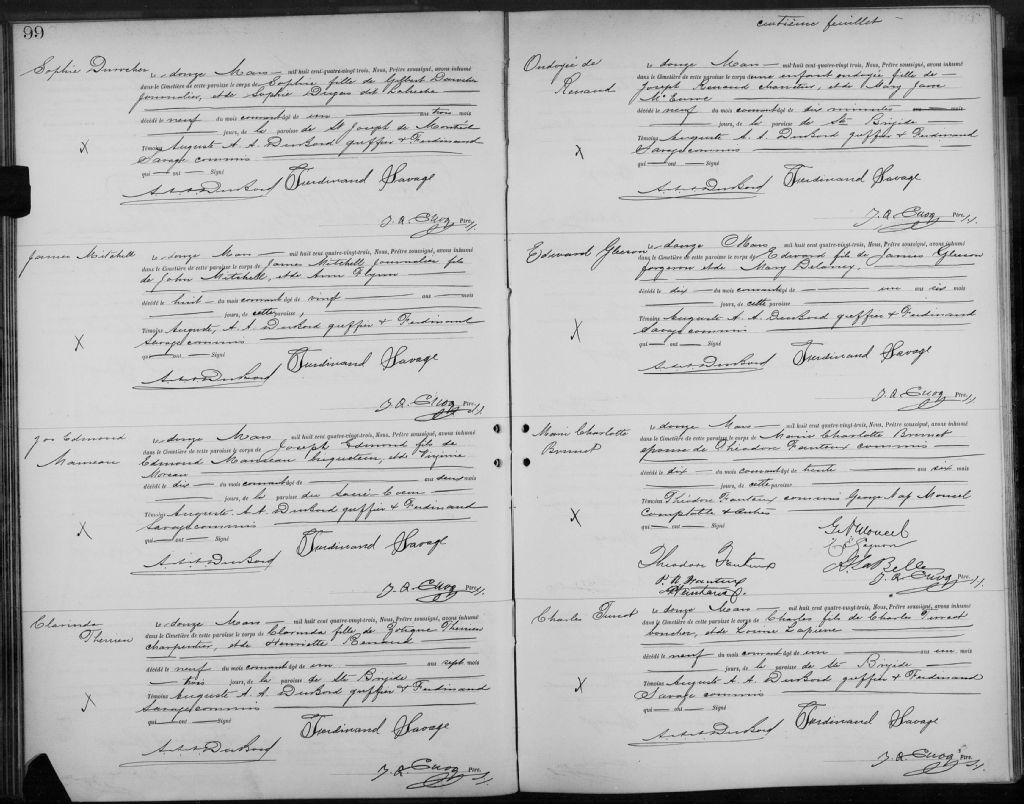 99
Sophie Durocher
Le douze Mars mil huit cent quatre-vingt-trois, Nous, Prêtre soussigné, avons inhumé
dans le Cimetière de cette paroisse le corps de Sophie fille de Gilbert Durocher
journalier, et de Sophie Dugas dit Labrèche
décédé le neuf du mois courant âgé de un ans trois mois
jours, de la paroisse de St Joseph de Montréal
Témoins Auguste A. A. DuBord greffier & Ferdinand
Savage commis
qui ont Signé
A. A. A. DuBord Ferdinand Savage
J. A. Cuoq Ptre. S.
James Mitchell
Le douze Mars mil huit cent quatre-vingt-trois, Nous, Prêtre soussigné, avons inhumé
dans le Cimetière de cette paroisse le corps de James Mitchell journalier fils
de John Mitchell, et de Ann Flynn
décédé le huit du mois courant âgé de vingt ans mois
jours, de cette paroisse,
Témoins Auguste, A. A. DuBord greffier & Ferdinand
Savage commis
qui ont Signé
A. A. A. DuBord Ferdinand Savage
J. A. Cuoq Ptre. S.
Jos Edmond
Manseau
Le douze Mars mil huit cent quatre-vingt-trois, Nous, Prêtre soussigné, avons inhumé
dans le Cimetière de cette paroisse le corps de Joseph Edmond fils de
Edmond Manseau briquetier, et de Virginie
Moreau
décédé le dix du mois courant âgé de ans deux mois
jours, de la paroisse du Sacré-Coeur
Témoins Auguste A. A. DuBord greffier & Ferdinand
Savage commis
qui ont Signé
A. A. A. DuBord Ferdinand Savage
J. A. Cuoq Ptre. S.
Clarinda
Therrien
Le douze Mars mil huit cent quatre-vingt-trois, Nous, Prêtre soussigné, avons inhumé
dans le Cimetière de cette paroisse le corps de Clarinda fille de Zotique Therrien
charpentier, et de Henriette Renaud
décédé le neuf du mois courant âgé de un ans sept mois
trois jours, de la paroisse de Ste Brigide
Témoins Auguste A. A. DuBord greffier & Ferdinand
Savage commis
qui ont Signé
A. A. A. DuBord Ferdinand Savage
J. A. Cuoq Ptre. S.
centième feuillet
Ondoyée de
Renaud
Le douze Mars mil huit cent quatre-vingt-trois, Nous, Prêtre soussigné, avons inhumé
dans le Cimetière de cette paroisse le corps de une enfant ondoyée fille de
Joseph Renaud charretier, et de Mary Jane
décédé le neuf du mois courant âgé de dix minutes mois
jours, de la paroisse de Ste Brigide
Témoins Auguste A. A. DuBord greffier & Ferdinand
Savage commis
qui ont Signé
A. A. A. DuBord Ferdinand Savage
J. A. Cuoq Ptre. S.
Edward Gleeson
Le douze Mars mil huit cent quatre-vingt-trois, Nous, Prêtre soussigné, avons inhumé
dans le Cimetière de cette paroisse le corps de Edward fils de James Gleeson
forgeron et de Mary Delaney
décédé le dix du mois courant âgé de un ans six mois
jours, de cette paroisse
Témoins Auguste A. A. DuBord greffier & Ferdinand
Savage commis
qui ont Signé
A. A. A. DuBord Ferdinand Savage
J. A. Cuoq Ptre. S.
Marie Charlotte
Brunet
Le douze Mars mil huit cent quatre-vingt-trois, Nous, Prêtre soussigné, avons inhumé
dans le Cimetière de cette paroisse le corps de Marie Charlotte Brunet
épouse de Théodore Fauteux commis
décédé le dix du mois courant âgé de trente ans six mois
jours, de cette paroisse
Témoins Théodore Fauteux commis George Nap Moncel
Comptable & autres
qui ont Signé
G. N. Moncel
Gagnon
Theodore Fauteux
LaBelle
J. A. Cuoq Ptre. S.
Charles Turcot
Le douze Mars mil huit cent quatre-vingt-trois, Nous, Prêtre soussigné, avons inhumé
dans le Cimetière de cette paroisse le corps de Charles fils de Charles Turcot
boucher, et de Louise Lapierre
décédé le neuf du mois courant âgé de un ans un mois
jours, de la paroisse de Ste Brigide
Témoins Auguste A. A. DuBord greffier & Ferdinand
Savage commis
qui ont Signé
A. A. A. DuBord Ferdinand Savage
J. A. Cuoq Ptre. S.